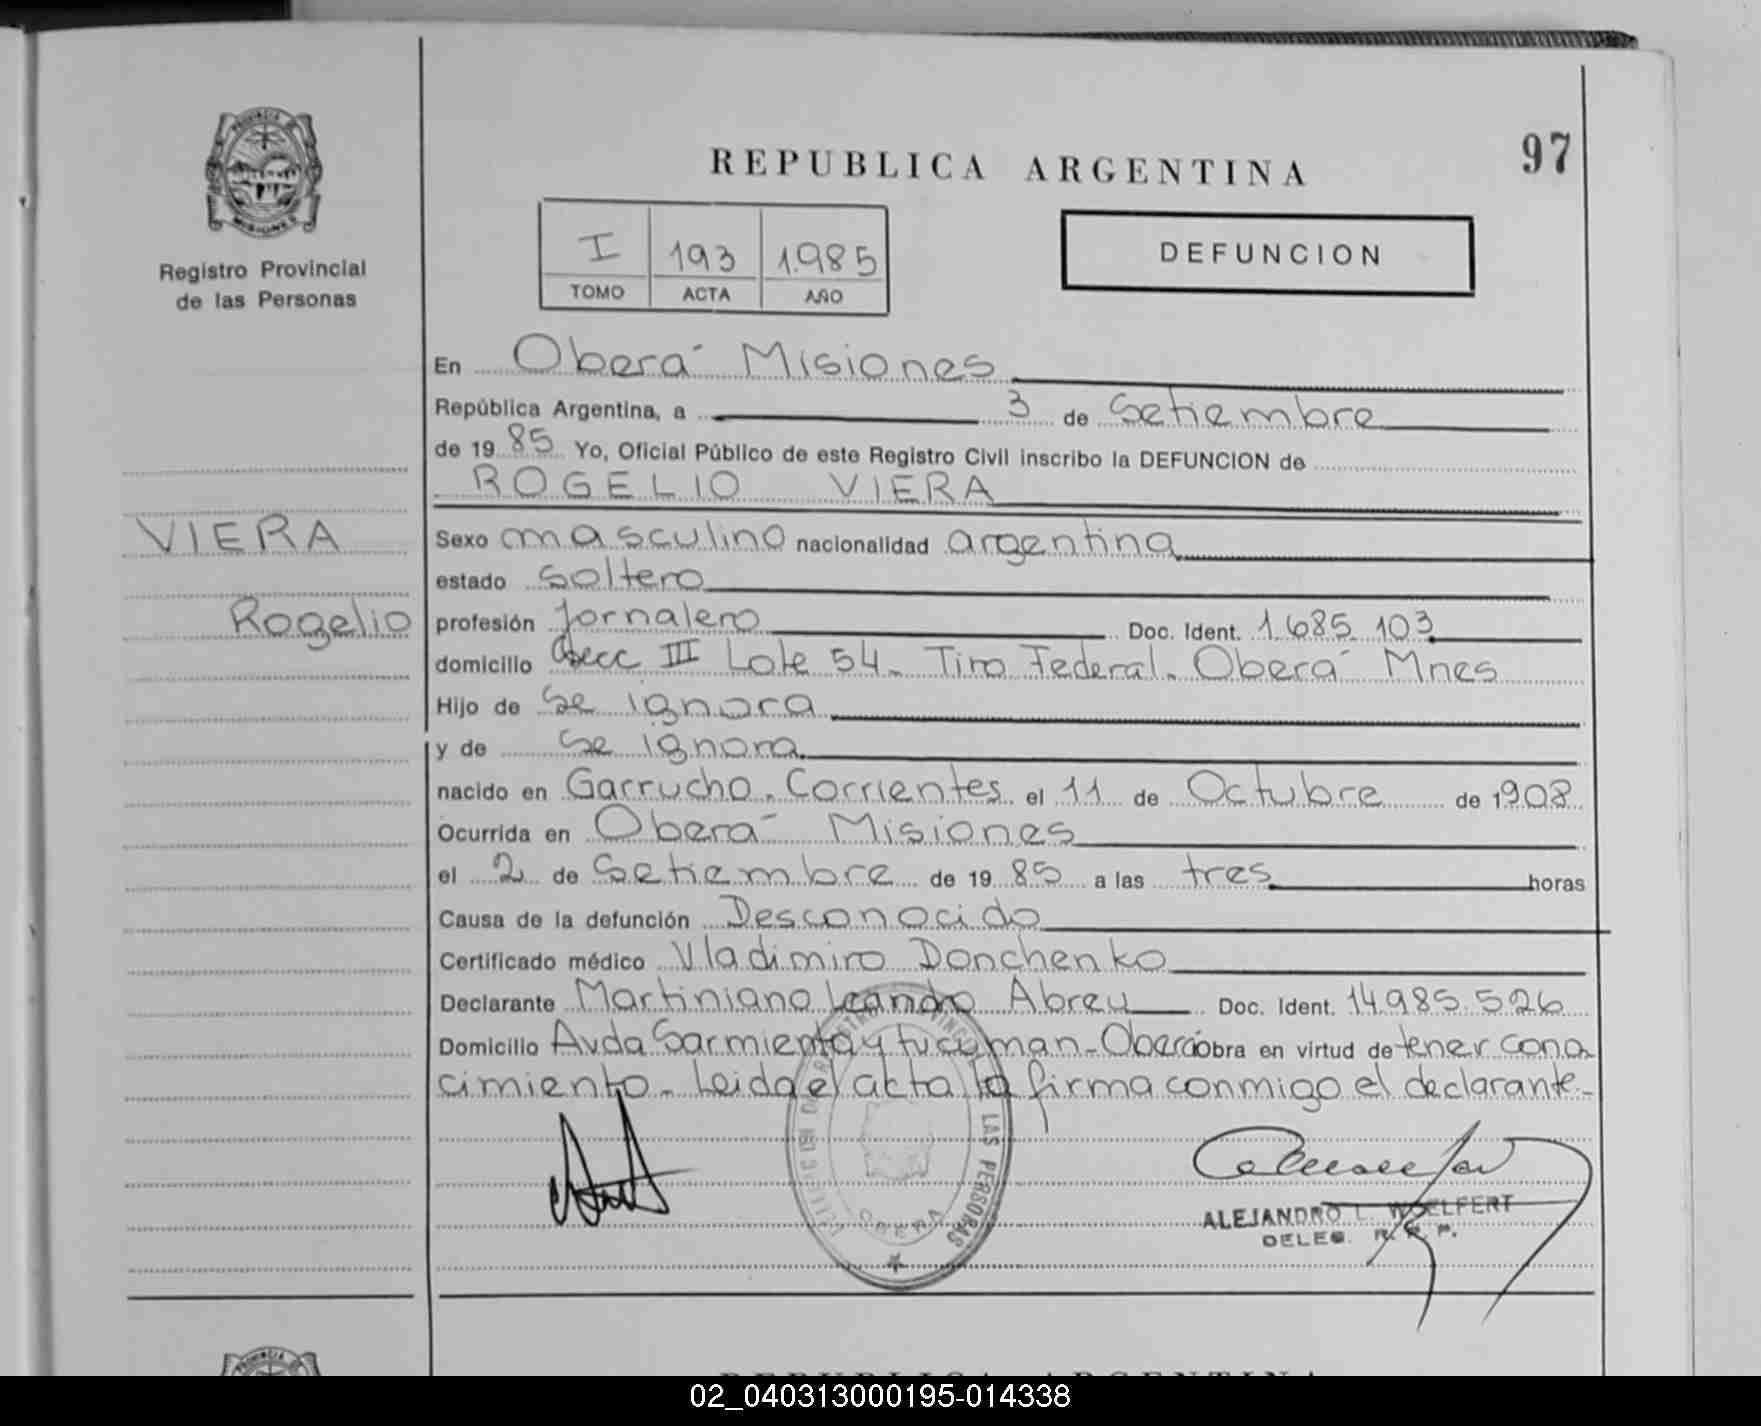 PROVINCIA DE
MISIONES
Registro Provincial
de las Personas
VIERA
Rogelio
97
REPUBLICA ARGENTINA
I 193 1.985
TOMO ACTA AÑO
DEFUNCION
En Oberá Misiones
República Argentina, a 3 de Setiembre
de 19 85 Yo, Oficial Público de este Registro Civil inscribo la DEFUNCION de
ROGELIO VIERA
Sexo masculino nacionalidad argentina
estado soltero
profesión Jornalero Doc. Ident. 1.685.103
domicilio Secc III Lote 54_ Tiro Federal. Oberá Mnes
Hijo de se ignora
y de se ignora
nacido en Garrucho. Corrientes el 11 de Octubre de 1908
Ocurrida en Oberá Misiones
el 2 de Setiembre de 19 85 a las tres horas
Causa de la defunción Desconocido
Certificado médico Vladimiro Donchenko
Declarante Martiniano Leandro Abreu Doc. Ident. 14.985.526
Domicilio Avda Sarmiento y tucuman-Oberá obra en virtud de tener cono
cimiento_ Leida el acta la firma conmigo el declarante_
LAS PERSONAS
OBERA
ALEJANDRO L. WOELFERT
DELEG. R. P. P.
PROVINCIA DE
REPUBLICA ARGENTINA
02_040313000195-014338